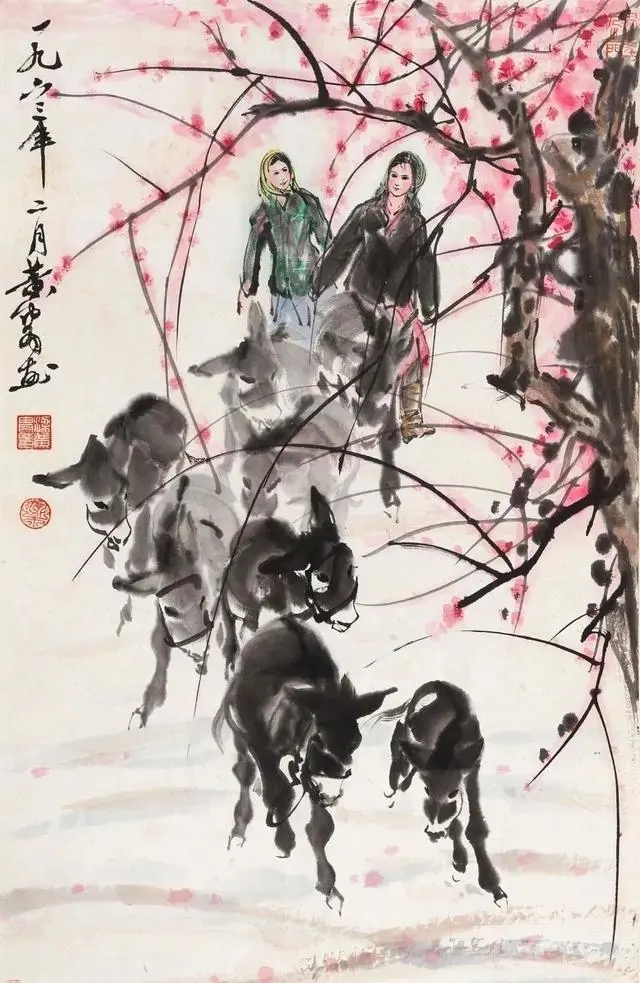 一九六三年二月黄胄画